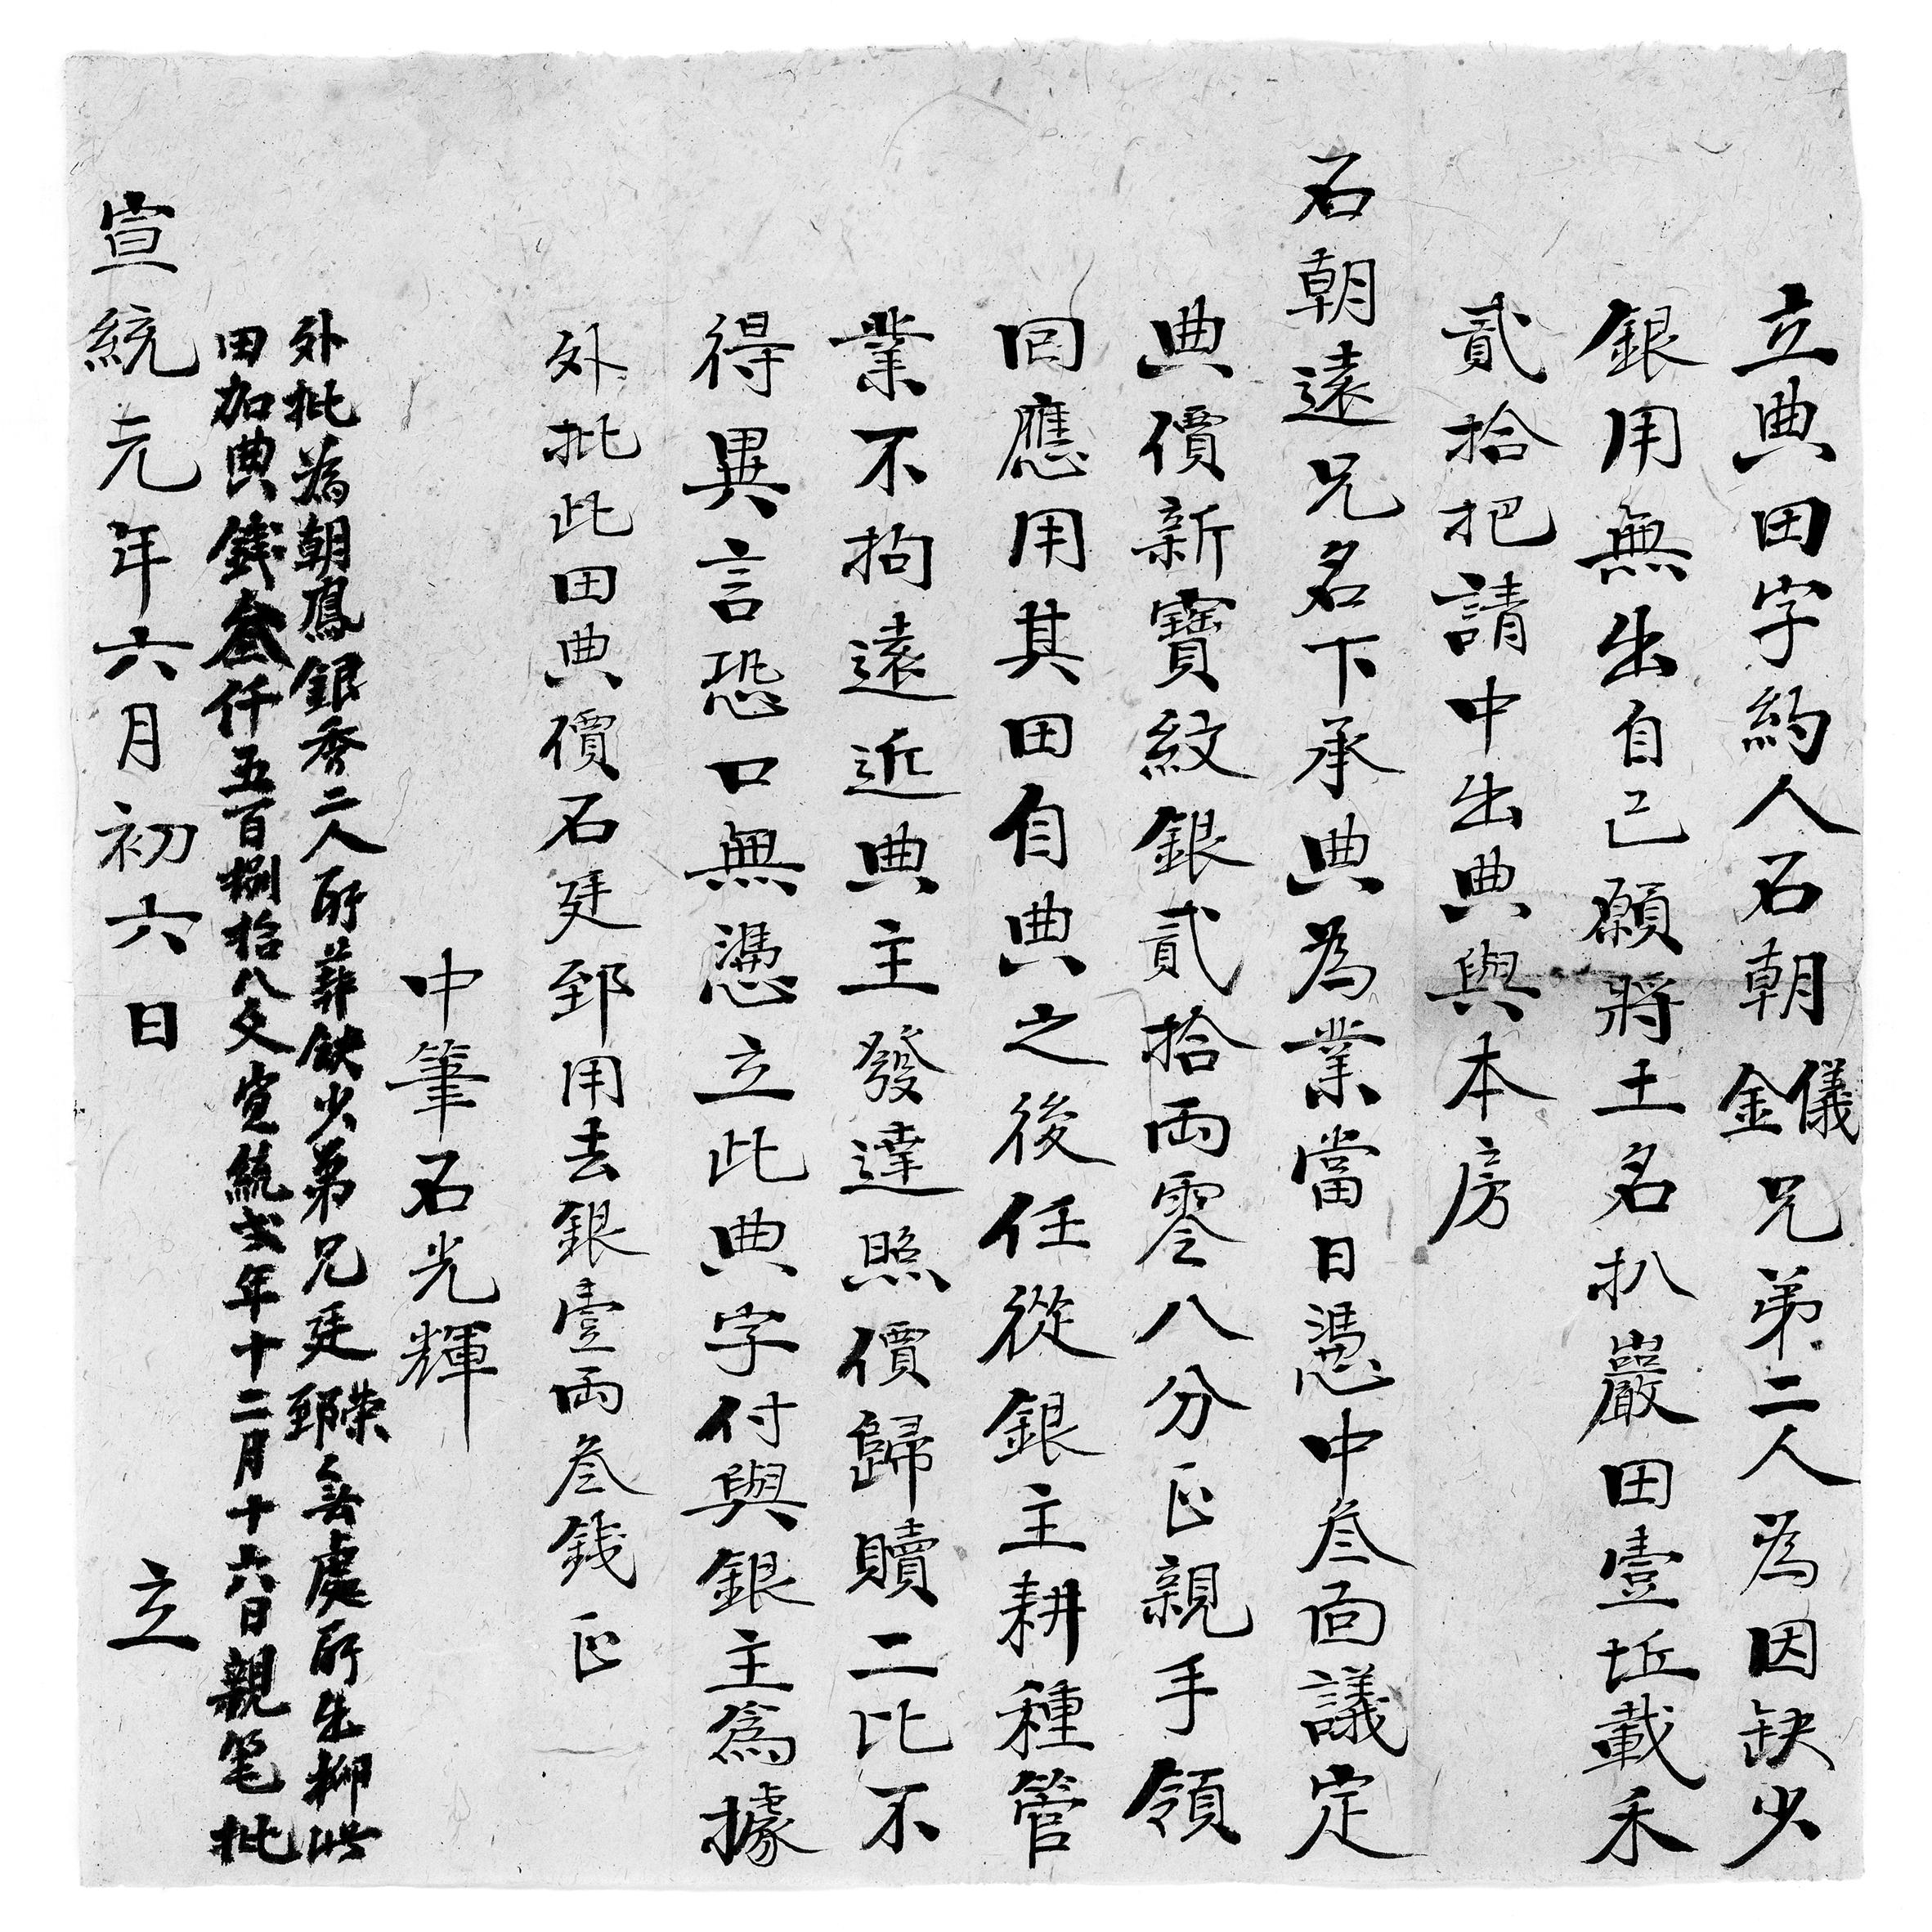 立典田字約人石朝儀金兄弟二人為因缺少
銀用無出自己願將土名扒巖田壹坵載禾
貳拾把請中出典與本房
石朝遠兄名下承典為業當日憑中叁面議定
典價新寶紋銀貳拾両零八分正親手領
囘應用其田自典之後任從銀主耕種管
業不拘遠近典主發達照價歸贖二比不
得異言恐口無憑立此典字付與銀主為據
外批此田典價石廷郅用去銀壹両叁錢正
中筆石光輝
外批為朝鳳銀秀二人所葬缺少弟兄廷榮郅無處所生將此
田加典錢叁仟五百捌拾八文宣統弍年十二月十六日親笔批
宣統元年六月初六日 立